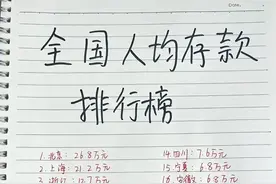 全国人均存款
排行榜
1.北京：26.8万元
2.上海：21.2万元
3.浙江：12.7万元
14.四川：7.6万元
15.宁夏：6.8万元
16.安徽：6.8万元